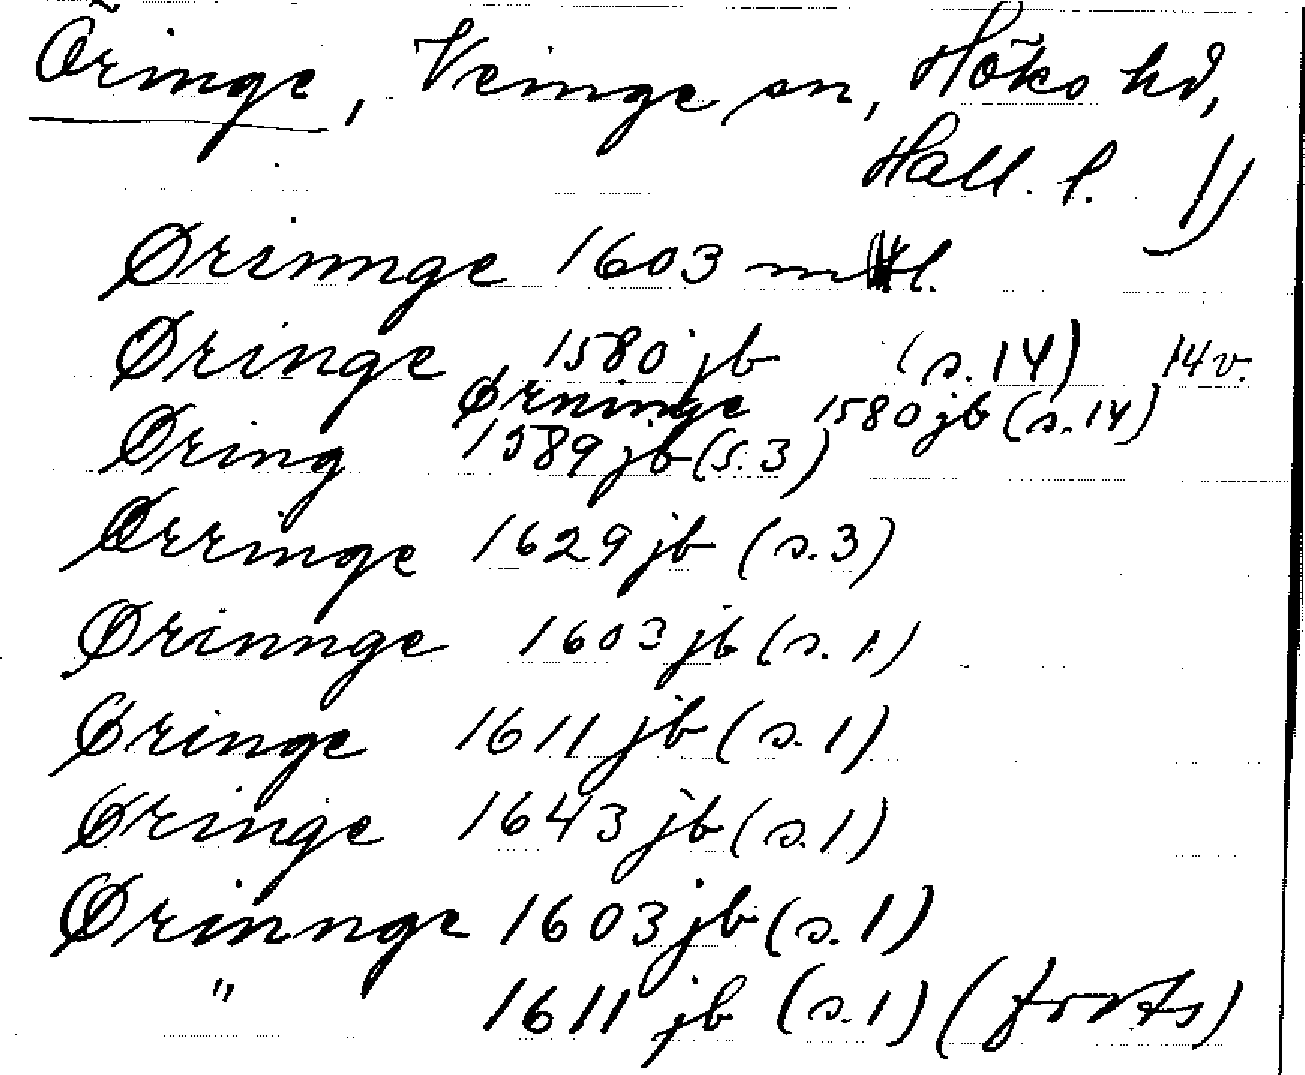 Öringe, Veinge sn, Höks hd,
Hall. l. 1)
Ørinnge 1603 mtl.
Øringe 1580 jb (s. 14) 14 v.
Ørninge 1580 jb (s. 14)
Øring 1589 jb (s. 3)
Ørringe 1629 jb (s. 3)
Ørinnge 1603 jb (s. 1)
Øringe 1611 jb (s. 1)
Øringe 1643 jb (s. 1)
Ørinnge 1603 jb (s. 1)
" 1611 jb (s. 1) (forts)